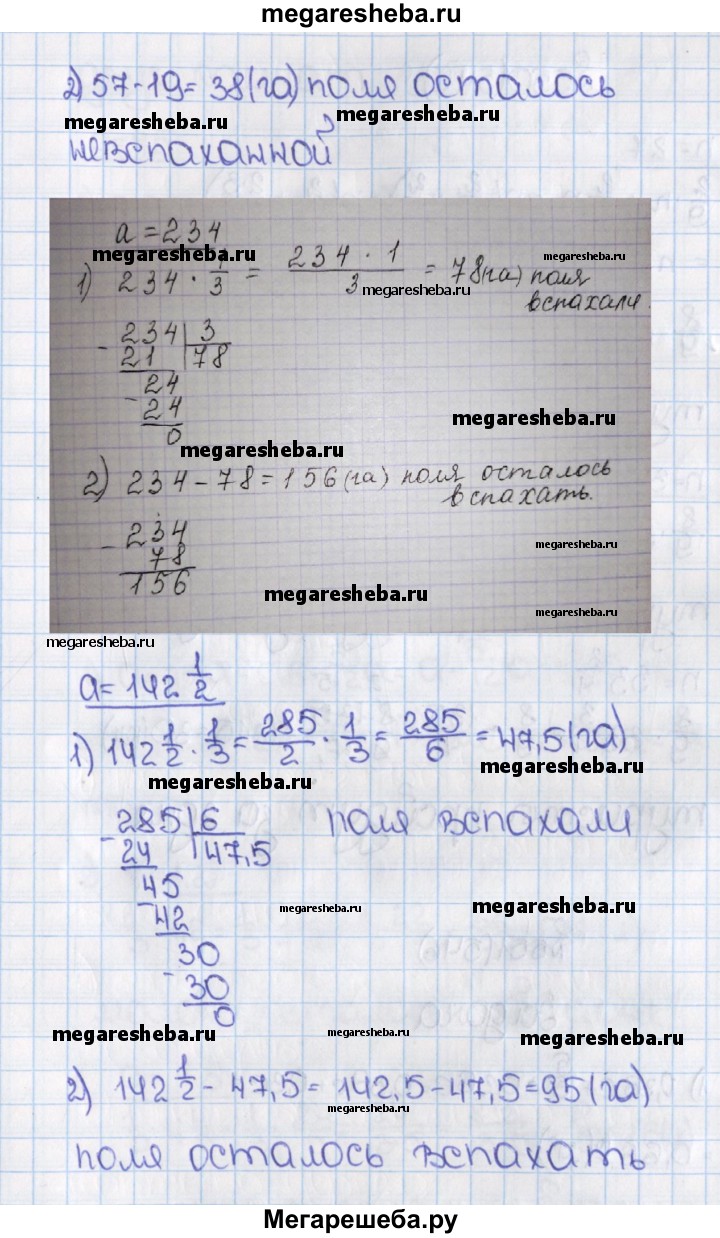 megaresheba.ru
2) 57-19= 38(га) поля осталось
megaresheba.ru megaresheba.ru
невспаханной
a = 234
megaresheba.ru megaresheba.ru
1) 234 · 1/3 = 234 · 1 / 3 = 78(га) поля
megaresheba.ru
вспахали.
- 234 | 3
21 | 78
24
- 24
0
megaresheba.ru
megaresheba.ru
2) 234 - 78 = 156 (га) поля осталось
вспахать.
- 234
78
156
megaresheba.ru
megaresheba.ru
megaresheba.ru
megaresheba.ru
a= 142 1/2
1) 142 1/2 · 1/3 = 285/2 · 1/3 = 285/6 = 47,5(га)
megaresheba.ru megaresheba.ru
- 285 | 6 поля вспахали
24 | 47,5
- 45
42
- 30
30
0
megaresheba.ru megaresheba.ru
megaresheba.ru megaresheba.ru megaresheba.ru
2) 142 1/2 - 47,5 = 142,5-47,5=95(га)
megaresheba.ru
поля осталось вспахать
Мегарешеба.ру